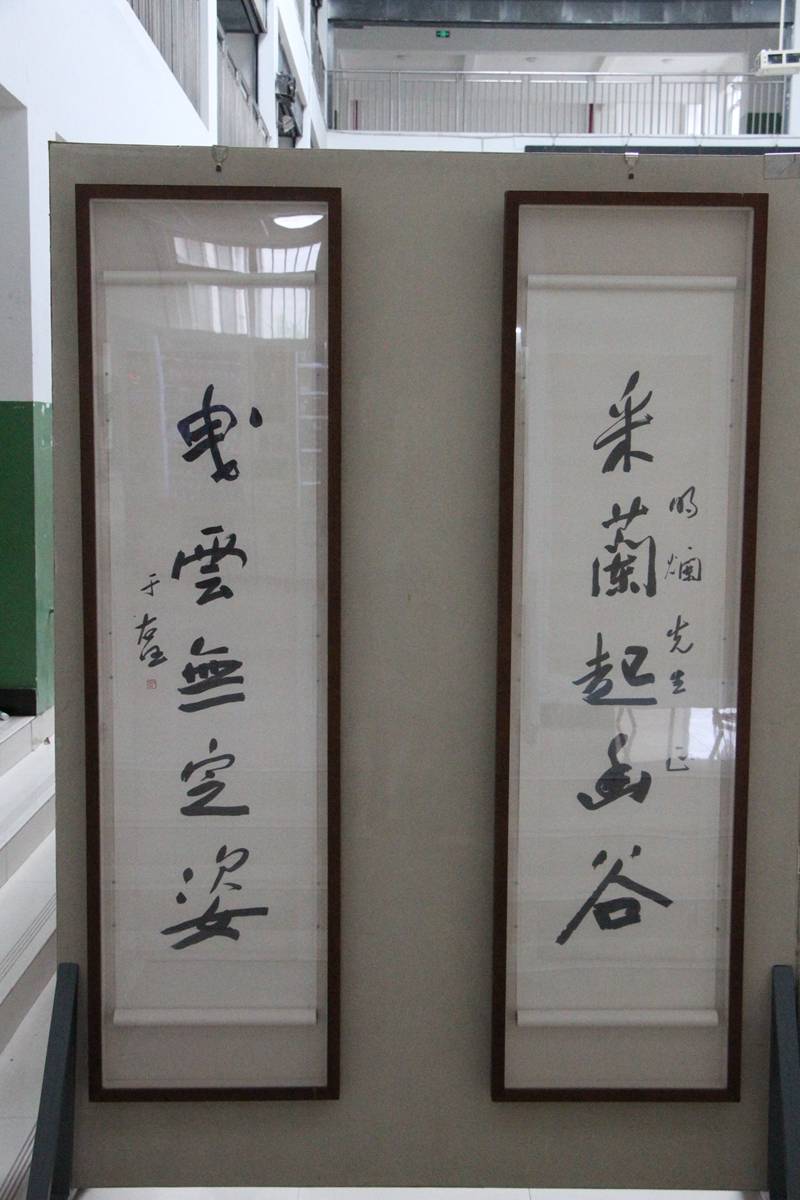 明爛先生正
采蘭起幽谷
曳雲無定姿
于右任